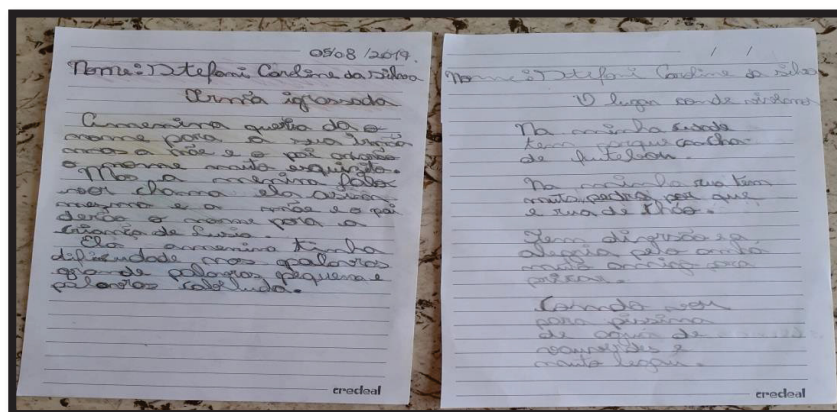 05/08/2019.
Nome: Stefani Caroline da Silva
Irmã igrossada
Amenina queria da o
nome para a sua irmã
mas a mãe e o pai
o nome muito esquizito.
Mas a menina falou
vou chama ela assim
mezmo e a mãe e o pai
derão o nome para a
criança de
Ela amenina tinha
dificudade nas palavras
grande palavras pequena e
palavras cabiluda.
credeal
/ /
Nome: Stefani Caroline da Silva
O lugar onde
Na minha
tem
de futebou.
Na minha rua tem
muita pedra por que
e rua de
Tem diversão e a
alegria pela
muito amigo
Coando vou
para pissina
de agua de
e
muito legau.
credeal